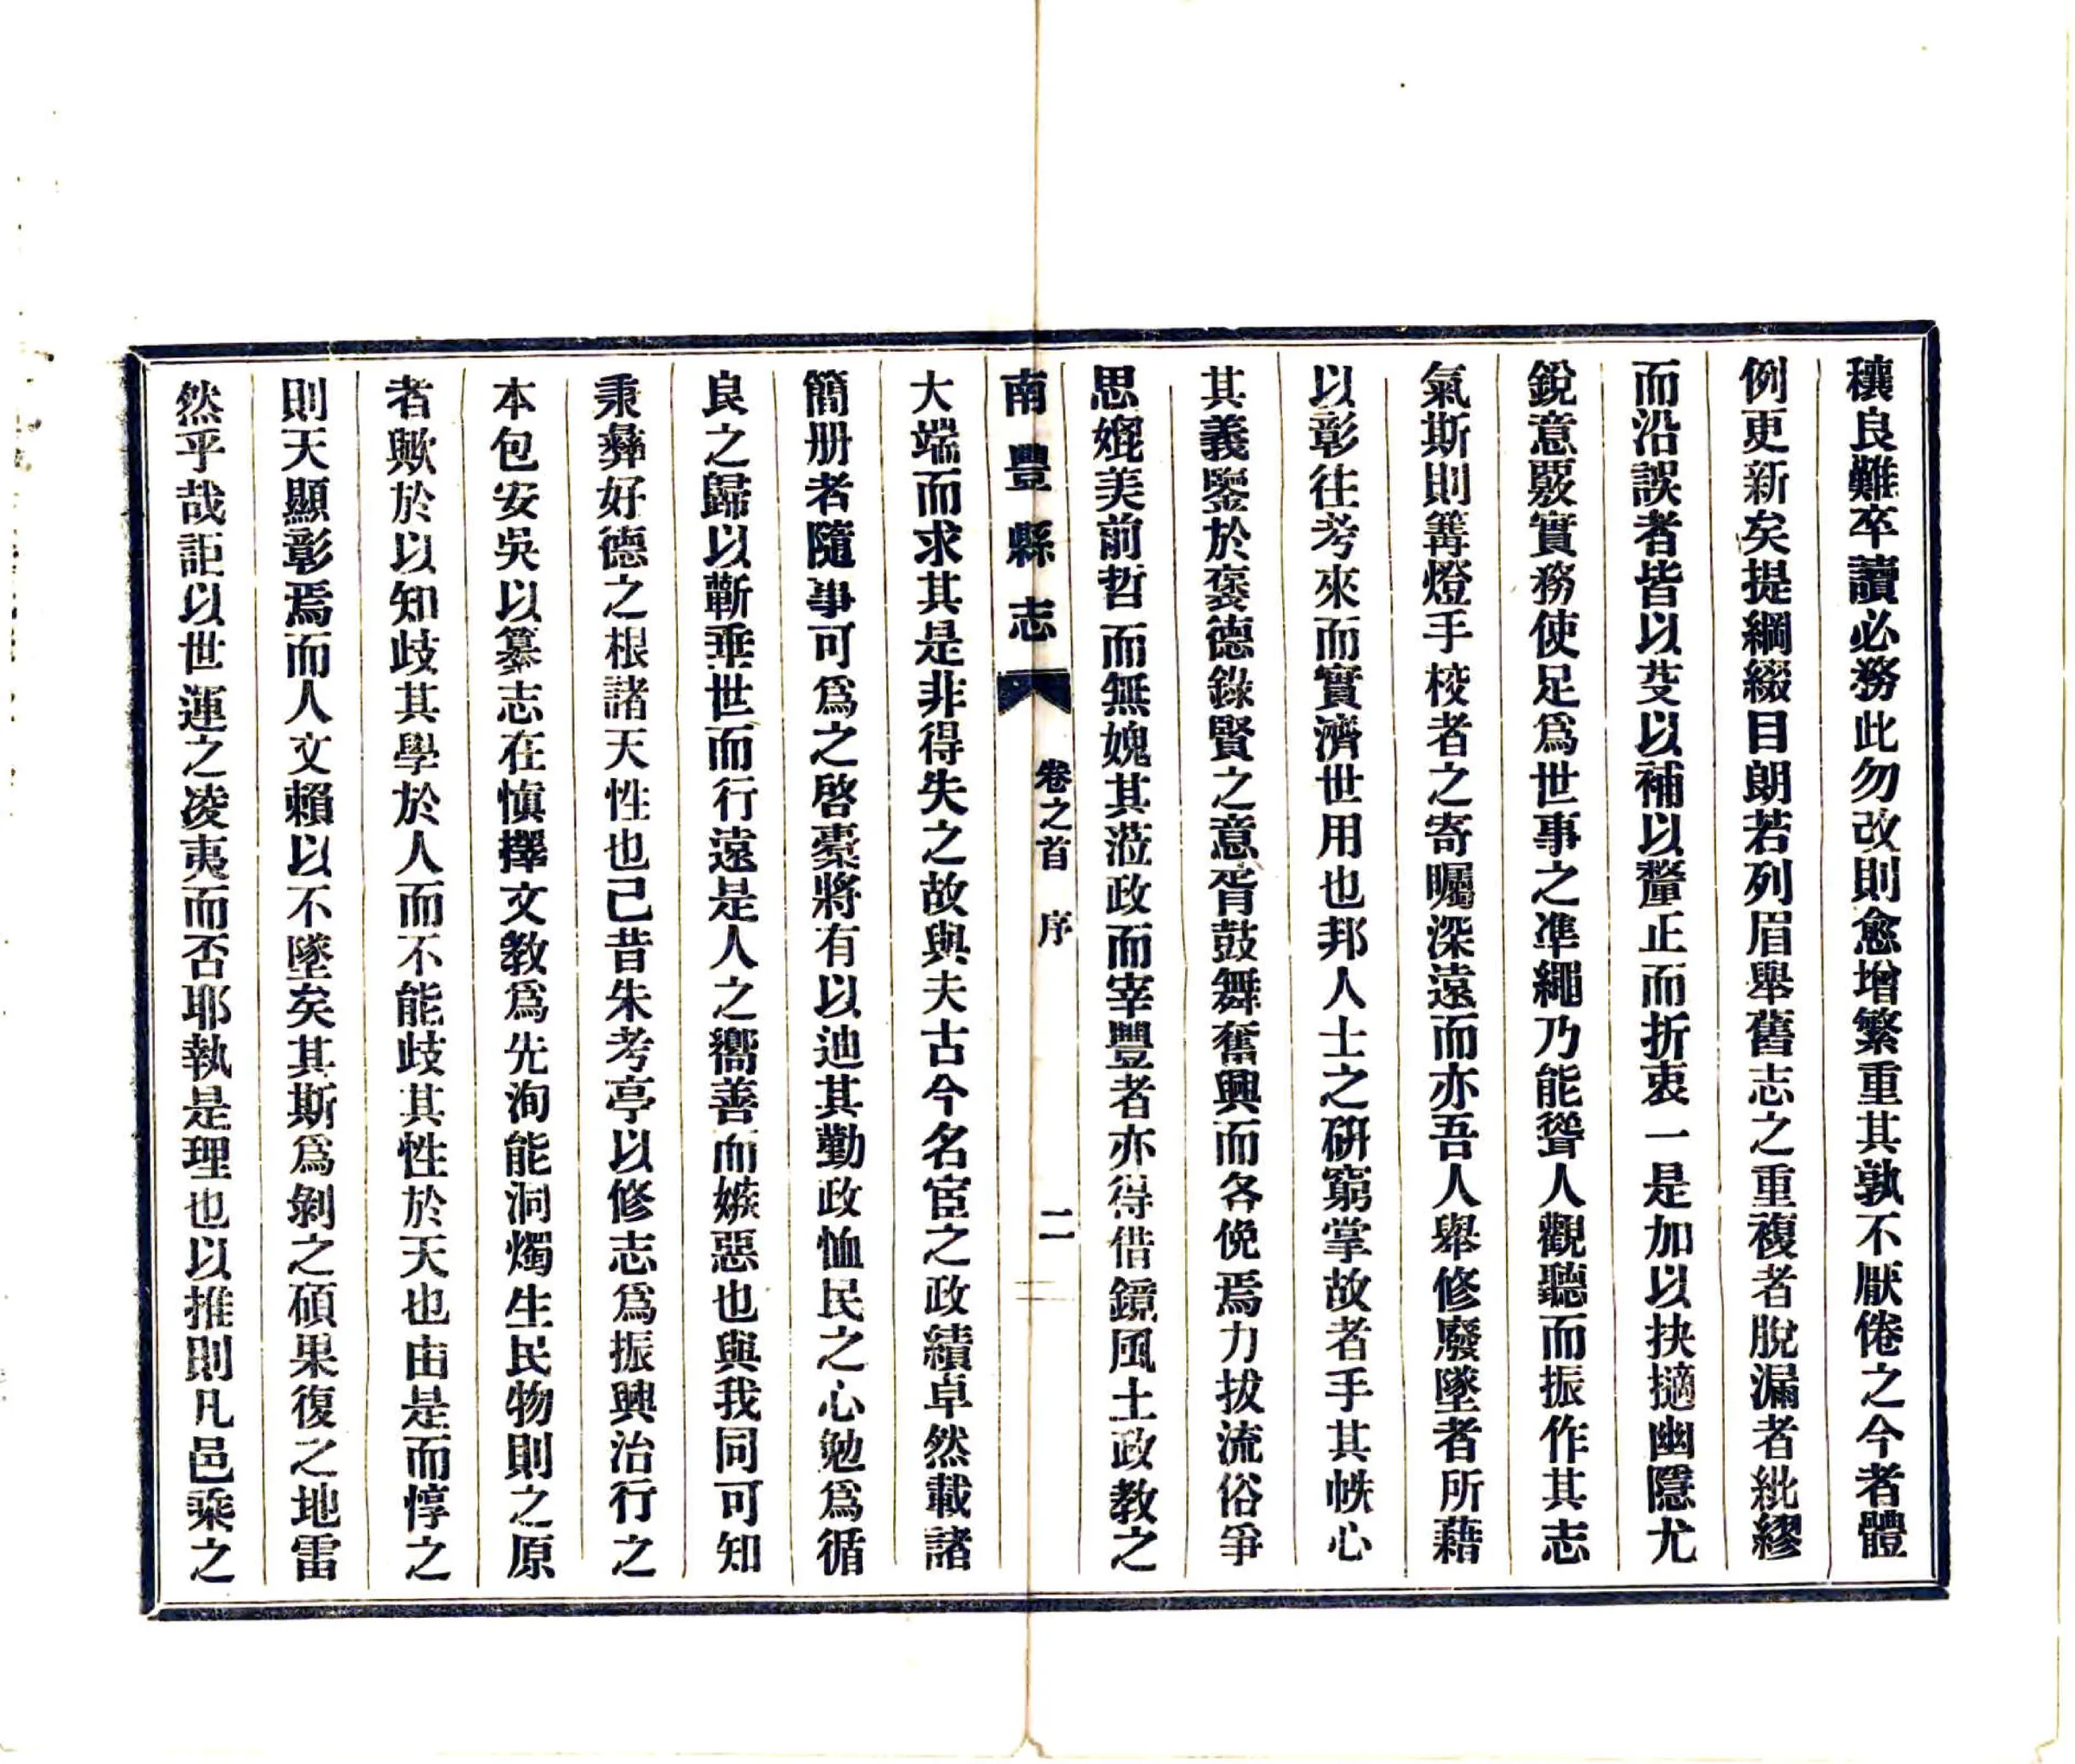 穰良難卒讀必務此勿改則愈增繁重其孰不厭倦之今者體
例更新矣提綱綴目朗若列眉舉舊志之重複者脫漏者紕繆
而沿誤者皆以芟以補以釐正而折衷一是加以抉擿幽隱尤
銳意覈實務使足爲世事之準繩乃能聳人觀聽而振作其志
氣斯則篝燈手校者之寄矚深遠而亦吾人舉修廢墜者所藉
以彰往考來而實濟世用也邦人士之硏窮掌故者手其帙心
其義鑒於褒德錄賢之意胥鼓舞奮興而各俛焉力拔流俗爭
思媲美前哲而無媿其涖政而宰豐者亦得借鏡風土政教之
南豐縣志 卷之首 序 二
大端而求其是非得失之故與夫古今名宦之政績卓然載諸
簡册者隨事可爲之啓槖將有以迪其勤政恤民之心勉爲循
良之歸以蘄垂世而行遠是人之嚮善而嫉惡也與我同可知
秉彝好德之根諸天性也已昔朱考亭以修志爲振興治行之
本包安吳以纂志在愼擇文教爲先洵能洞燭生民物則之原
者歟於以知歧其學於人而不能歧其性於天也由是而惇之
則天顯彰焉而人文賴以不墜矣其斯爲剝之碩果復之地雷
然乎哉詎以世運之凌夷而否耶執是理也以推則凡邑乘之